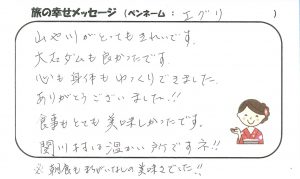 旅の幸せメッセージ (ペンネーム:エグリ)
山や川がとってもきれいです。
大石ダムも良かったです。
心も身体もゆっくりできました。
ありがとうございました!!
食事もとても美味しかったです。
関川村は温かい所ですネ!!
※朝食もまちがいなしの美味さでした!!